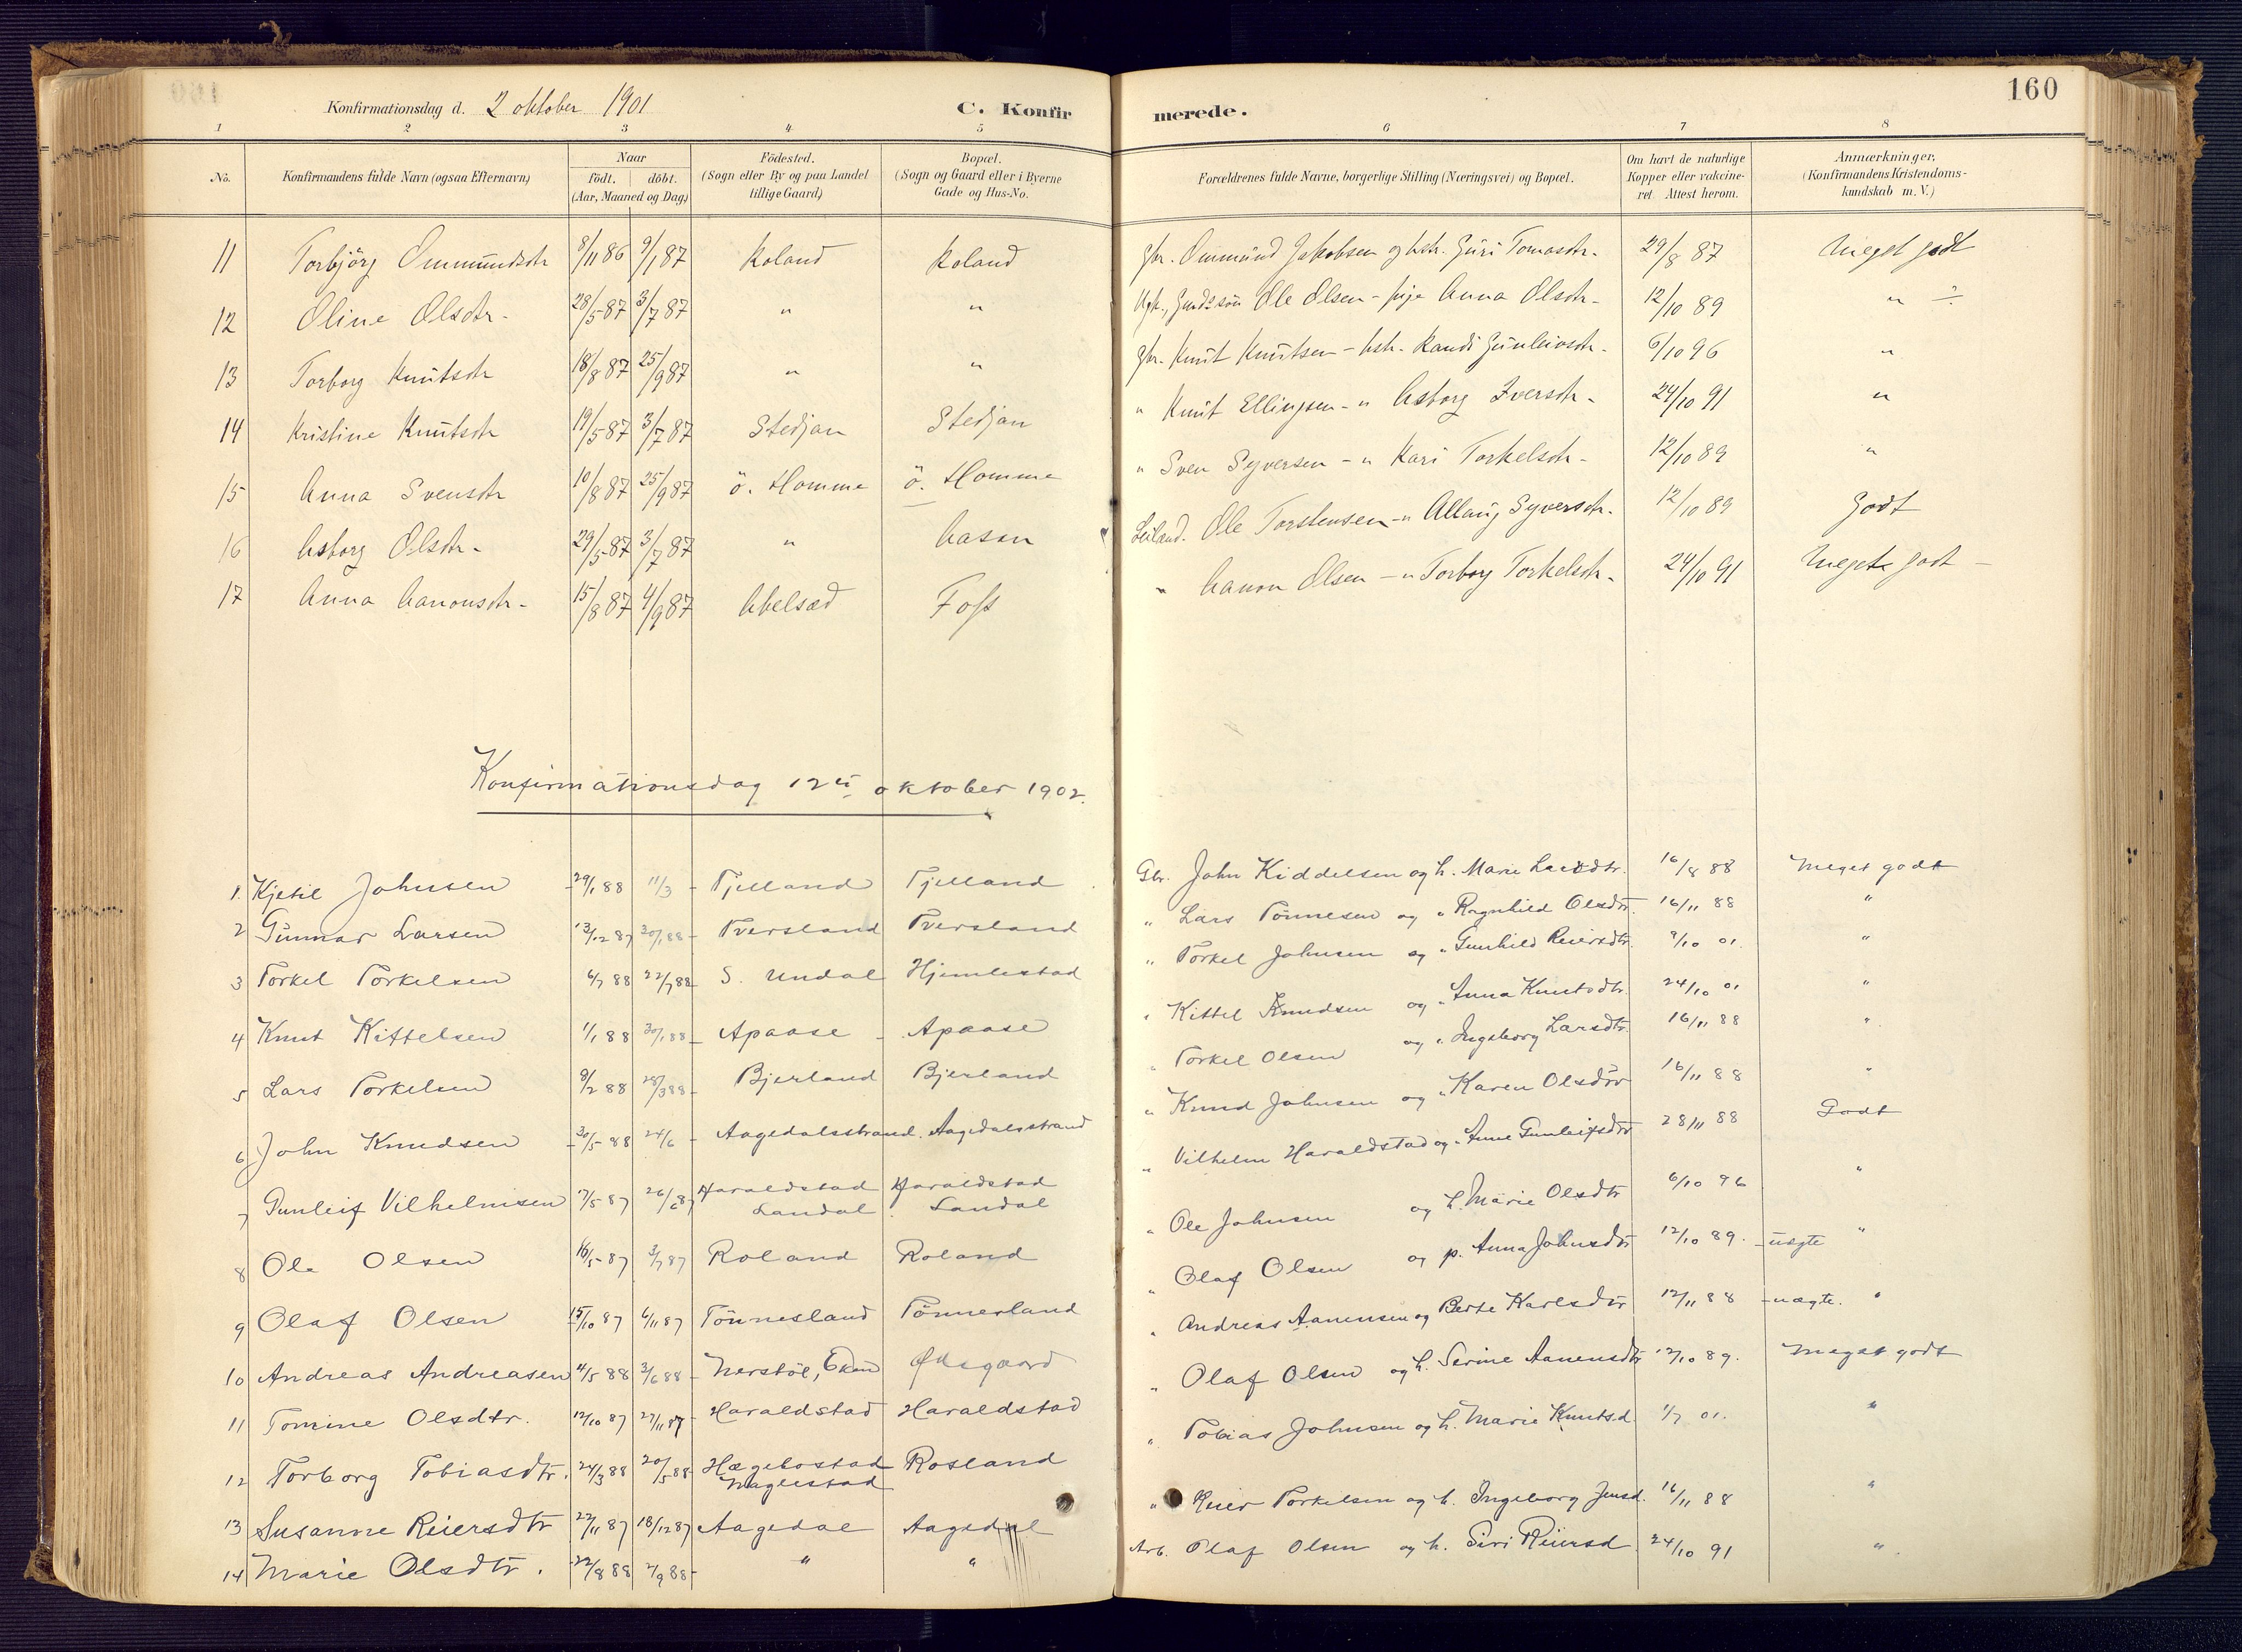 160
Konfirmationsdag d. 2 oktober 1901 C. Konfirmerede.
1 2 3 4 5 6 7 8
No. Konfirmandens fulde Navn (ogsaa Efternavn) Naar født. døbt. (Aar, Maaned og Dag) Födested. (Sogn eller By og paa Landet tillige Gaard) Bopæl. (Sogn og Gaard eller i Byerne Gade og Hus-No. Forældrenes fulde Navne, borgerlige Stilling (Næringsvei) og Bopæl. Om havt de naturlige Kopper eller vakcineret. Attest herom. Anmærkninger. (Konfirmandens Kristendomskundskab m. V.)
11 Torbjörg Ommundsdtr 8/11 86 9/1 87 Roland Roland Gbr. Ommund Jakobsen og hstr. Guri Tomasdtr. 29/8 87 Meget godt
12 Oline Olsdtr. 28/5 87 3/7 87 " " Ole Olsen - pige Anna Olsdtr. 12/10 89 "
13 Torborg Knutsdtr 18/8 87 25/9 87 " " Gbr. Knut Knutsen - hstr. Randi Gunleivsdtr. 6/10 96 "
14 Kristine Knutsdtr 19/5 87 3/7 87 Stedjan Stedjan " Knut Ellingsen - " Asborg Iversdtr. 24/10 91 "
15 Anna Svensdtr 10/8 87 25/9 87 ö. Homme ö. Homme " Sven Syversen - " Kari Torkelsdtr. 12/10 89 "
16 Asborg Olsdtr. 29/5 87 3/7 87 " Aasen Leiland. Ole Torstensen - " Allaug Syversdtr. 12/10 89 Godt
17 Anna Aanonsdtr. 15/8 87 4/9 87 Abelsæd Foss " Aanon Olsen - " Torborg Torkelsdtr. 24/10 91 Meget godt
Konfirmationsdag 12te oktober 1902.
1. Kjetil Johnsen 29/1 88 11/3 - Tjelland Tjelland Gbr. John Kiddelsen og h. Marie Larsdtr. 16/8 88 Meget godt
2 Gunnar Larsen 13/12 87 30/1 88 - Tversland Tversland " Lars Tönnesen og " Ragnhild Olsdtr. 16/11 88 "
3 Torkel Torkelsen 6/7 88 22/7 88 S. Undal Hjemlestad " Torkel Johnsen og " Gunhild Reiersdtr. 9/10 01. "
4 Knut Kittelsen 1/1 88 30/1 88 - Apaase - Apaase " Kittel Knudsen og " Anna Knutsdtr. 24/10 01 "
5 Lars Torkelsen 8/2 88 28/3 88 - Bjerland Bjerland " Torkel Olsen og " Ingeborg Larsdtr. 16/11 88 "
6 John Knudsen 30/5 88 24/6 - Aagedalsstrand. Aagedalsstrand " Knud Johnsen og " Karen Olsdtr 16/11 88 "
7 Gunleif Vilhelmsen 17/5 87 26/6 87 Haraldstad Landal Haraldstad Landal " Vilhelm Haraldstad og " Anne Gunleifsdtr 28/11 88 Godt
8 Ole Olsen 16/5 87 3/7 87 Roland Roland " Ole Johnsen og h. Marie Olsdtr 6/10 96 "
9 Olaf Olsen 15/10 87 6/11 87 Tönnesland Tönnesland " Olaf Olsen og p. Anna Johnsdtr 12/10 89. - uægte "
10 Andreas Andreasen 4/5 88 3/6 88 - Nerstöl, Eken Ödegaard " Andreas Aanensen og Berte Karlsdtr 12/11 88 - uægte. "
11 Tomine Olsdtr. 12/10 87 27/11 87 - Haraldstad Haraldstad " Olaf Olsen og h. Serine Aanensdtr 12/10 89. Meget godt
12 Torborg Tobiasdtr. 24/3 88 20/5 88 Hægebostad Naglestad Rosland " Tobias Johnsen og h. Marie Knutsd. 1/7 01. "
13 Susanne Reiersdtr 22/11 87 18/12 87 Aagedal Aagedal " Reier Torkelsen og h. Ingeborg Jensd. 16/11 88 "
14 Marie Olsdtr. 22/8 88 2/9 88 - " " Arb. Olaf Olsen og h. Siri Reiersd. 24/10 91 "